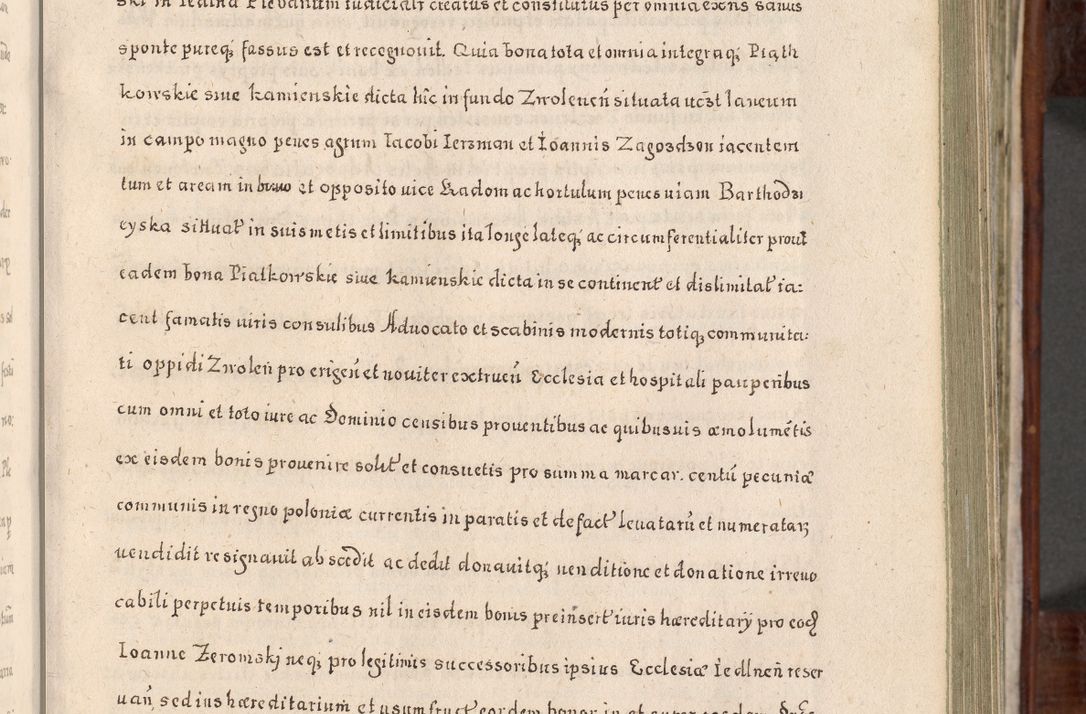 ski in Iedlna Plebanum iudicialr creatus et constitutus per omnia exñs sanus
sponte pureq; fassus est et recegnouit. Quia bona tota et omnia integraq; Piąth
kowskie siue kamienskie dicta hîc in fundo Zwolenen̄ situata uc3t laneum
in campo magno penes agrum Iacobi Ierzman et Ioannis Zagozdzon iacentem
tum et aream in et opposito uice Radom ac hortulum penes uiam Barthodzi
eyska situat̃ in suis metis et limitibus ita longe lateq; ac circumferentialiter prout
eadem bona Piatkowskie siue kamienskie dicta in se continent̃ et distimitat̃ ia:
cent famatis uiris consulibus Aduocato et scabinis modernis totiq; communita:
ti oppidi Zwolen̄ pro erigen̄ et nouiter extruen̄ Ecclesia et hospitali pauperibus
cum omni et toto iure ac Dominio censibus prouentibus ac quibusuis æmolumētis
ex eisdem bonis prouenire solit̃ et consuetis pro summa marcar. centū pecuniæ
communis in regno poloniæ currentis in paratis et de fact̃ leuatarū et numeratarʒ
uendidit resignauit abscedit ac dedit donauitq; uenditione et donatione irreuo
cabili perpetuis temporibus nil in eisdem bonis preinsert̃ iuris hæreditarÿ pro eod
Ioanne Zeromskj neq; pro legitimis successoribus ipsius Ecclesiæ Iedlnen̄ reser
uan̄ sed ius hæreditarium et usumfruct̃ eordem bonor in et super eosdem